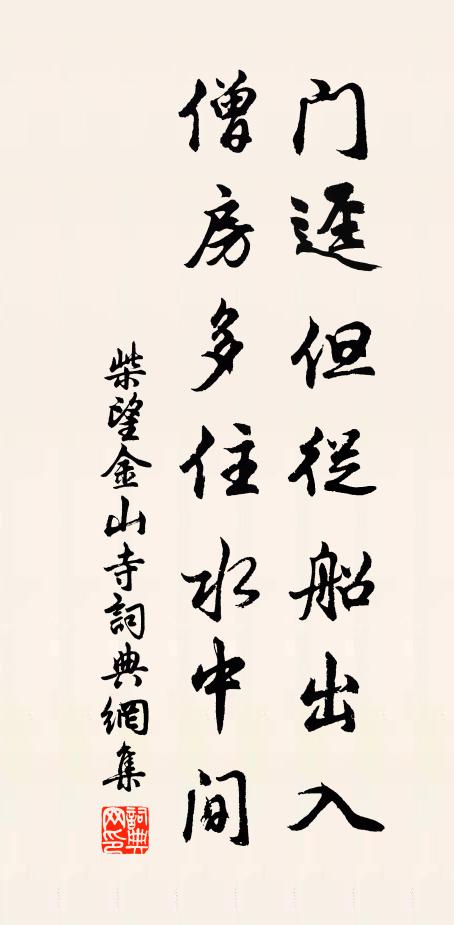 门逕但從船出入
僧房多住水中间
柴望金山寺詞典網集
詞典网印